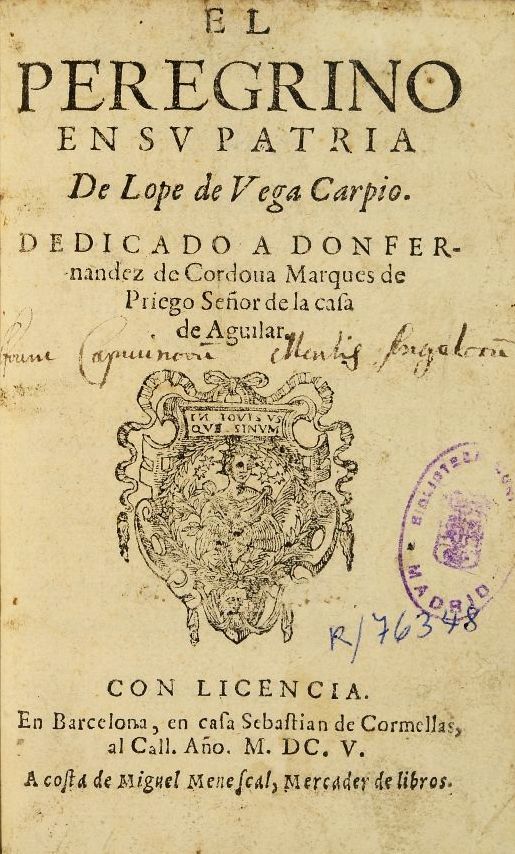 EL
PEREGRINO
EN SV PATRIA
De Lope de Vega Carpio.
DEDICADO A DON FER-
nandez de Cordoua Marques de
Priego Señor de la caſa
de Aguilar.
Capucinorũ Montis
IN IOVIS VS
QVE SINVM
BIBLIOTECA
MADRID
R/76348
CON LICENCIA.
En Barcelona, en caſa Sebaſtian de Cormellas,
al Call. Año. M. DC. V.
A coſta de Miguel Meneſcal, Mercader de libros.